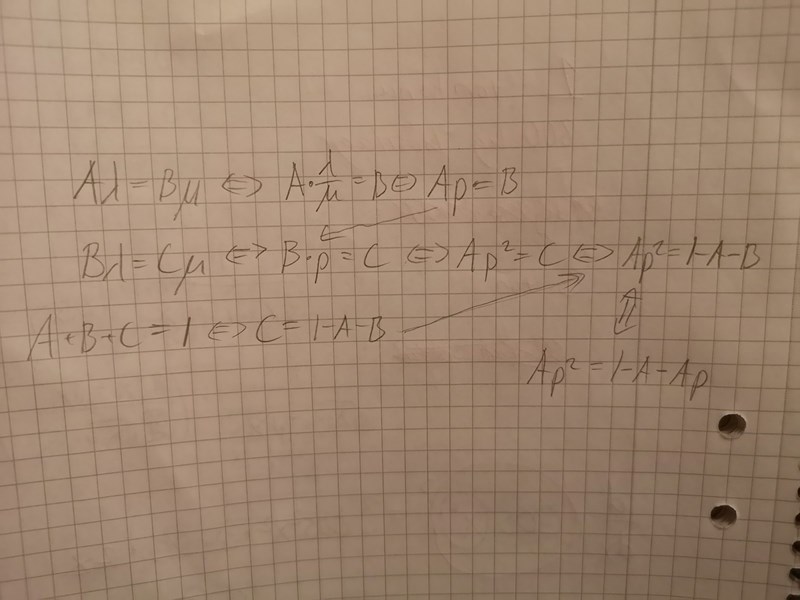 Aλ = Bμ ⇔ A·λ/μ = B ⇔ Aρ = B
Bλ = Cμ ⇔ B·ρ = C ⇔ Aρ² = C ⇔ Aρ² = 1-A-B
A+B+C = 1 ⇔ C = 1-A-B
⇕
Aρ² = 1-A-Aρ